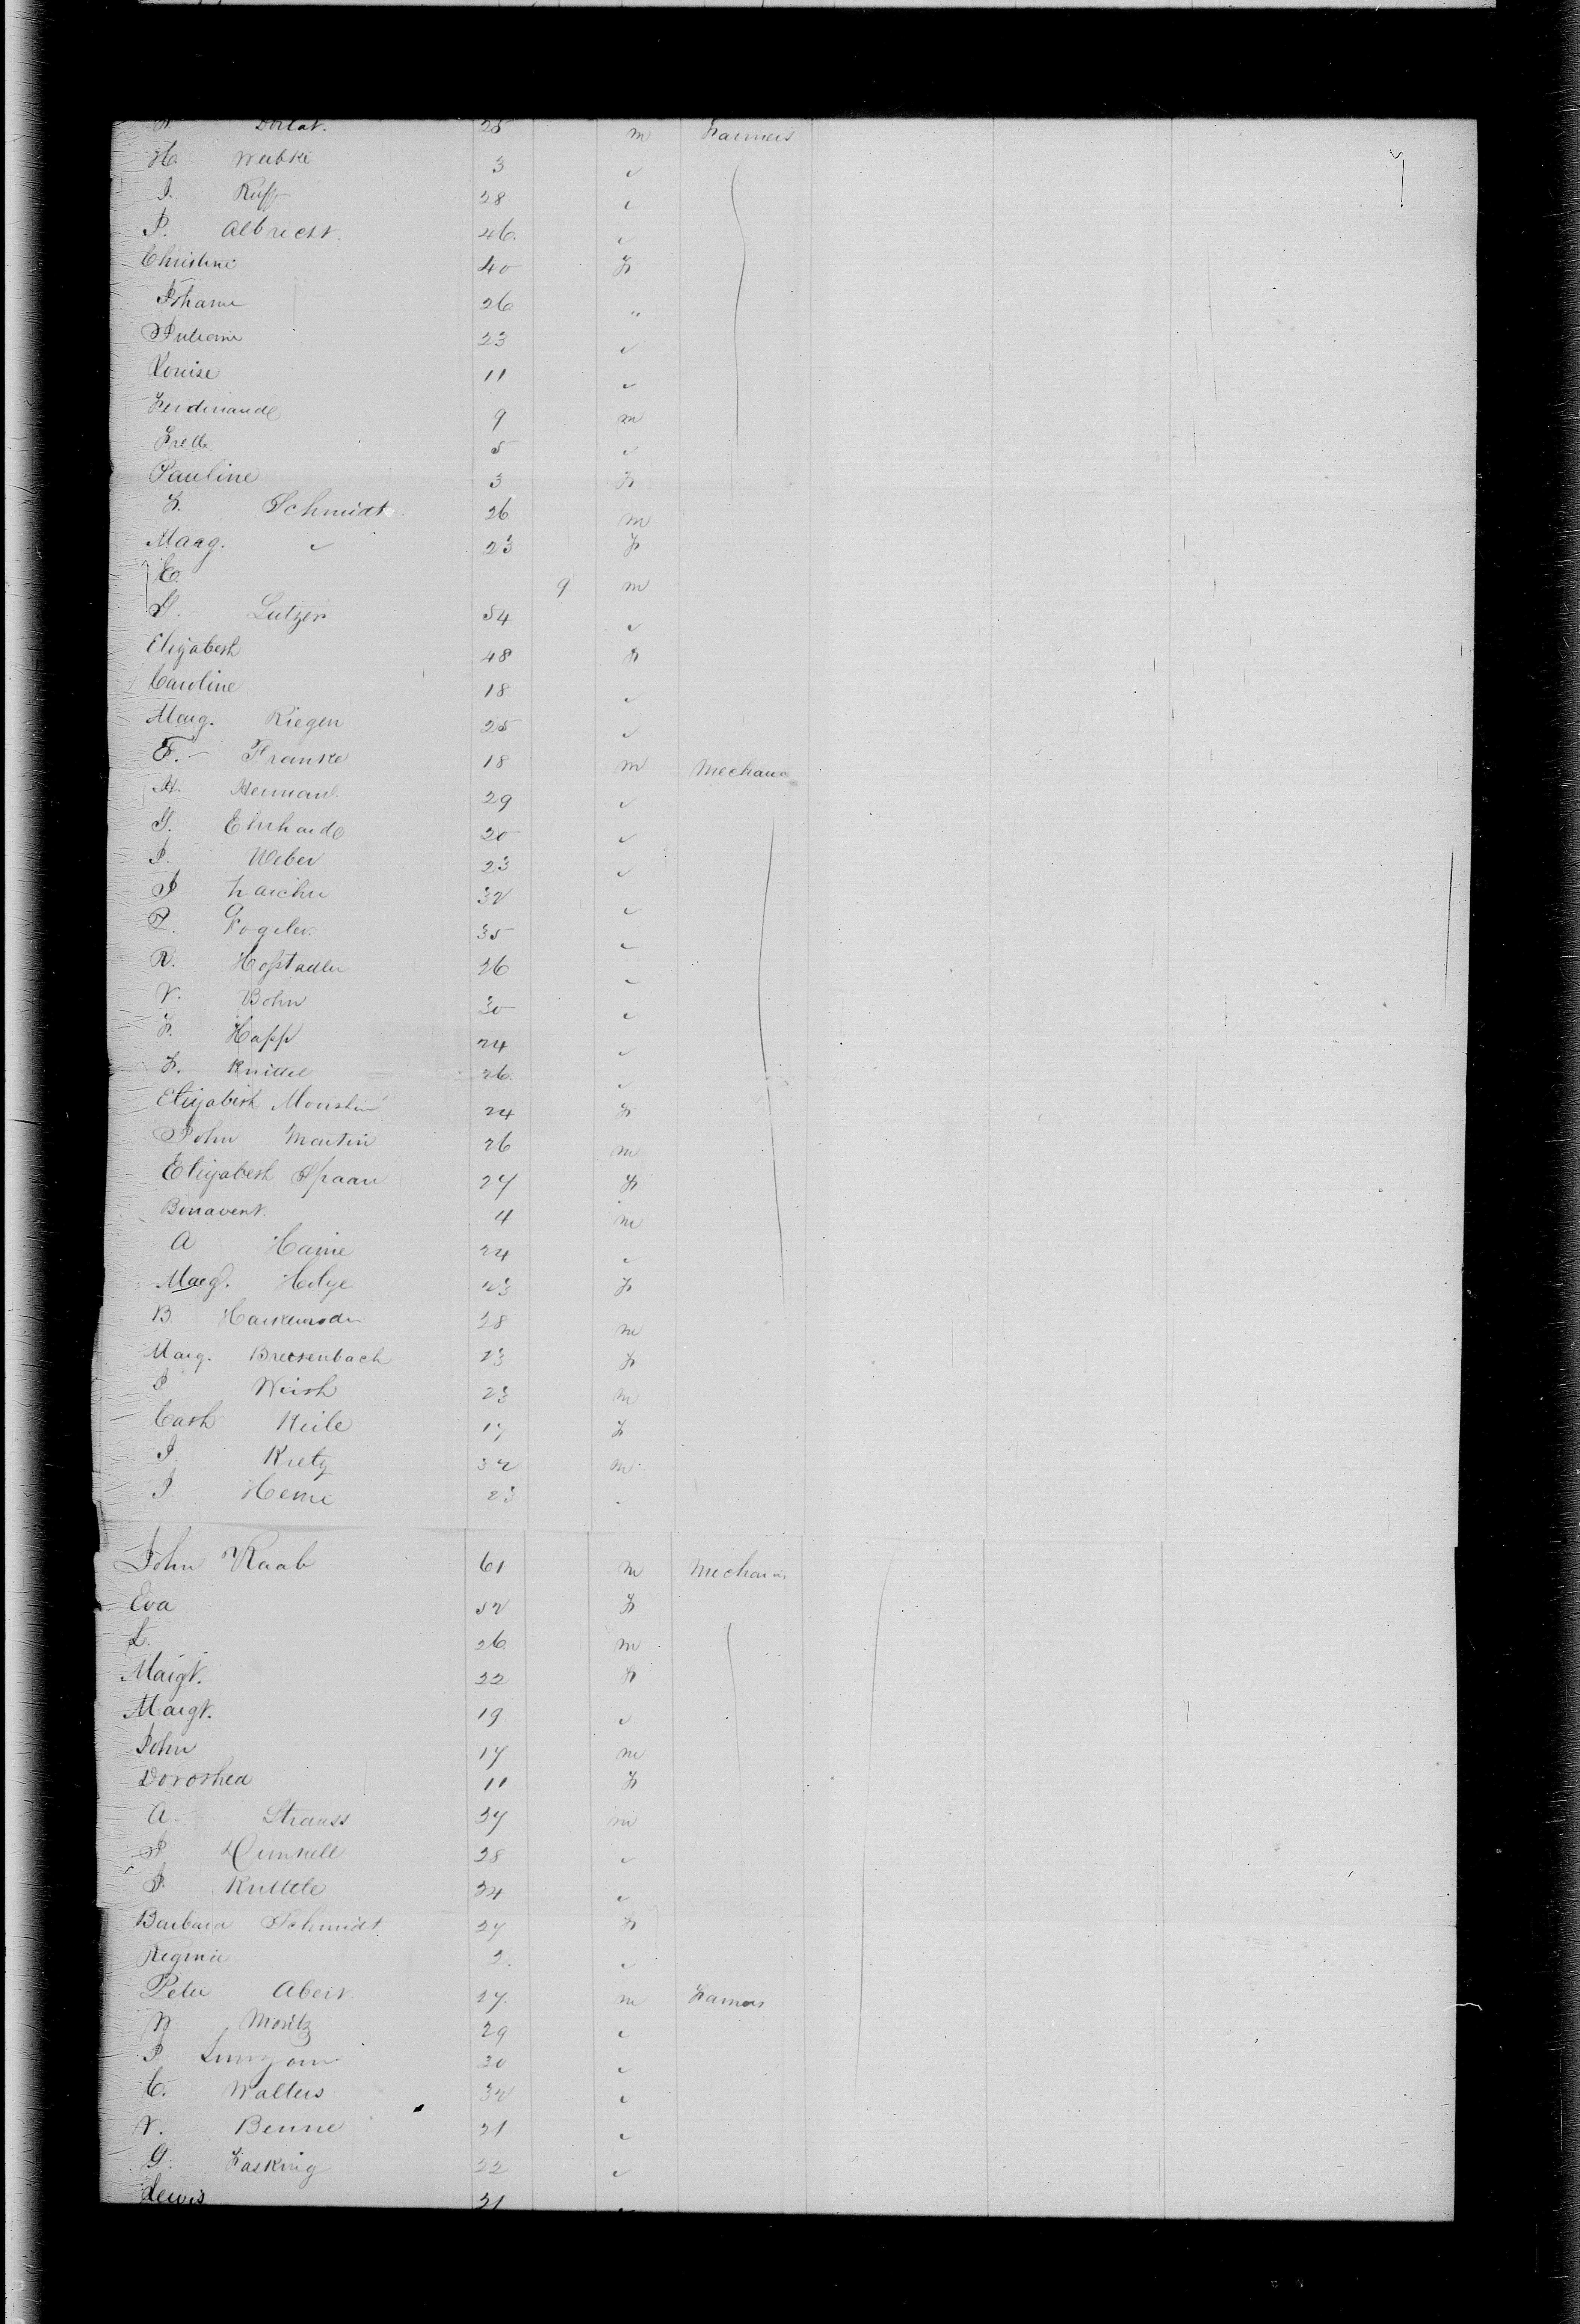 25 m Farmers
H. Wubke 3 "
J. Ruff 28 "
P. Albrecht. 46 "
Christine 40 F
Johanne 26 "
23 "
Louise 11 "
Ferdinande 9 m
Fredk 5 "
Pauline 3 F
F. Schmidt 26 m
Marg. " 23 F
C. 9 m
G. Lutzen 54 "
Elizabeth 48 F
Caroline 18 "
Marg. Riegen 25 "
F. Franke 18 m Mechanic
H. Hermann 29 "
G. Ehrhardt 20 "
J. Weber 23 "
J 32 "
Vogeler. 35 "
R. Hofstadler 26 "
V. Bohn 30 "
F. Happ 24 "
F. Knittel 26 "
Elizabeth 24 F
John Martin 26 m
Elizabeth Spaan 27 F
Bonavent. 4 m
A Haine 24 "
Margt. 23 F
B 28 m
Marg. Breesenbach 23 F
J Wirth 23 m
Cath Keile 17 F
J. Kretz 32 m
J Heme 23 "
John Raab 61 m Mechanic
Eva 52 F
L. 26 m
Margt. 22 F
Margt. 19 "
John 17 m
Dorothea 11 F
A. Strauss 37 m
J Dunkell 28 "
J. 34 "
Barbara Schmidt. 27 F
Regina 2. "
Peter Abert. 27. m Farmers
N Moritz 29 "
J 30 "
C. Walters 32 "
V. Benne 21 "
G. Fasking 22 "
Lewis 31 "